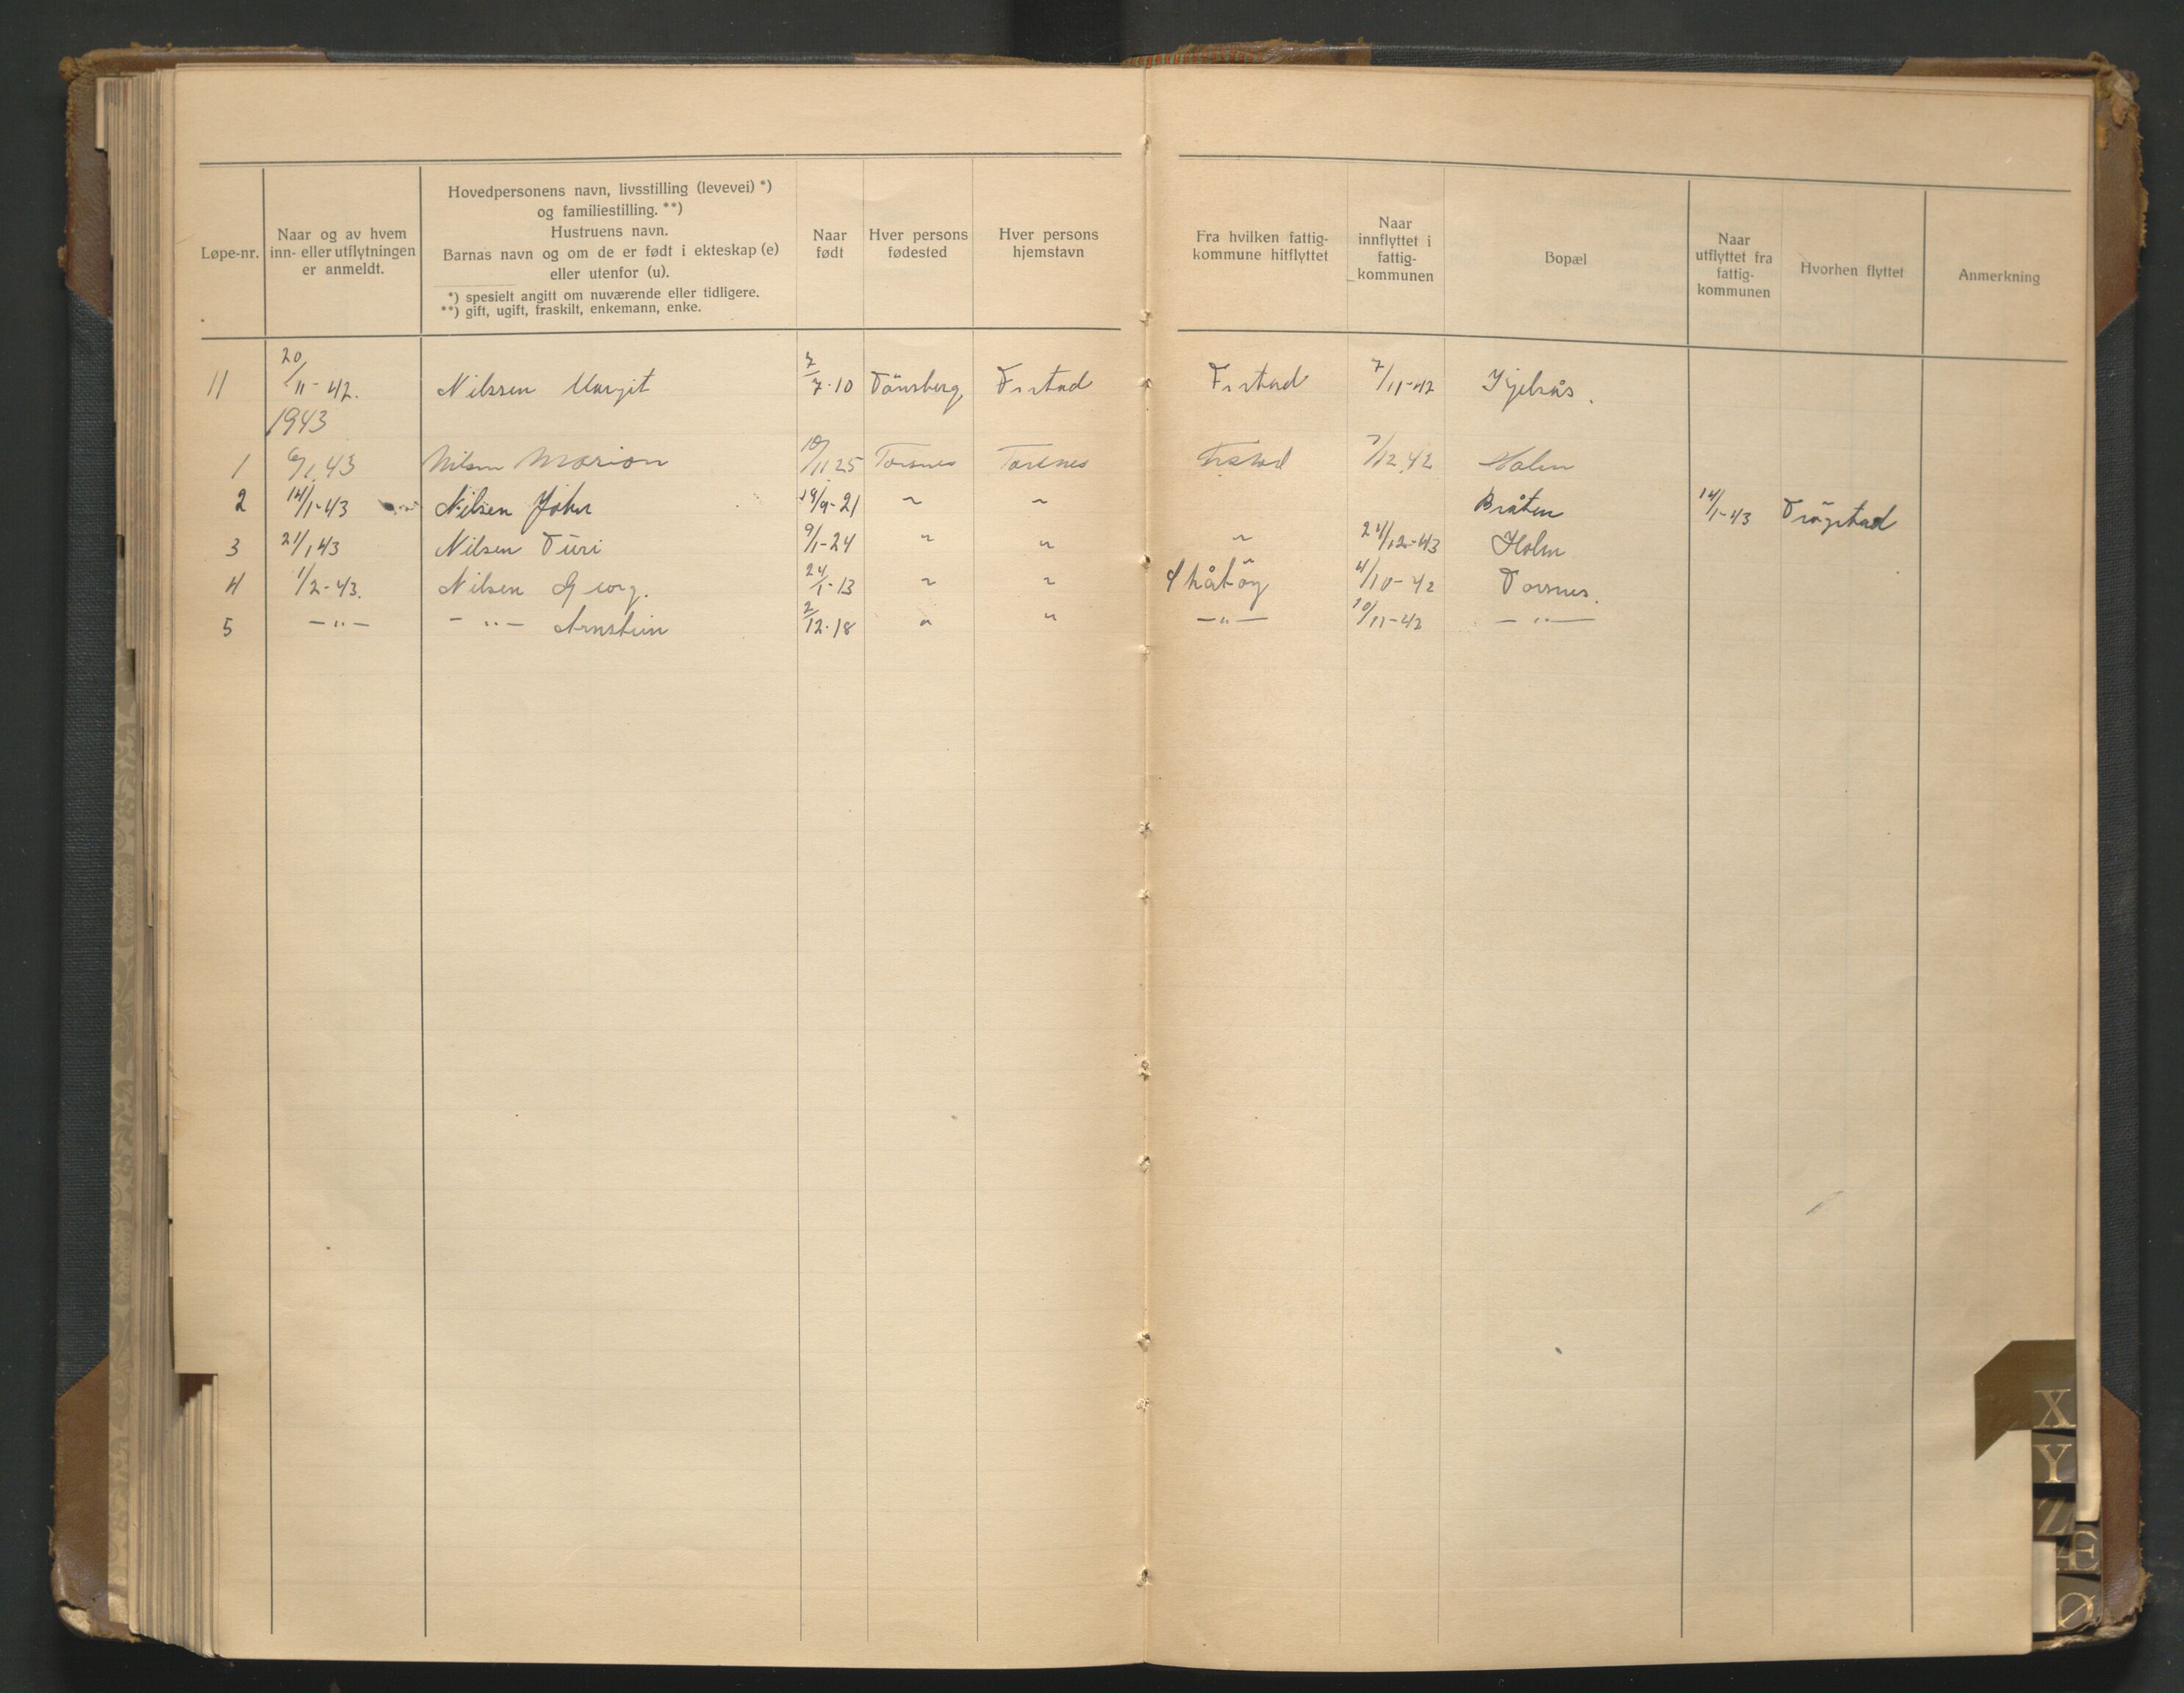 Løpe-nr.
Naar og av hvem
inn- eller utflytningen
er anmeldt.
Hovedpersonens navn, livsstilling (levevei) *)
og familiestilling. **)
Hustruens navn.
Barnas navn og om de er født i ekteskap (e)
eller utenfor (u).
*) spesielt angitt om nuværende eller tidligere.
**) gift, ugift, fraskilt, enkemann, enke.
Naar
født
Hver persons
fødested
Hver persons
hjemstavn
Fra hvilken fattig-
kommune hitflyttet
Naar
innflyttet i
fattig-
kommunen
Bopæl
Naar
utflyttet fra
fattig-
kommunen
Hvorhen flyttet
Anmerkning
11 20/11-42. Nilssen Margit 7/7-10 Tönsberg, Frstad Frstad 7/11-42
1943
1 6/1 43 Nilsen Marion 10/11 25 Torsnes Torsnes Frstad 7/12 42 Holm
2 14/1-43 Nilsen John 19/9-21 " " Bråten 14/1-43 Trögstad
3 21/1 43 Nilsen Turi 9/1-24 " " " 24/12-43 Holm
4 1/2-43. Nilsen Georg. 24/1-13 " " Skåtöy 4/10-42 Torsnes.
5 -"- -"- Arnstein 2/12-18 " " -"- 10/11-42 -"-
X
Y
Z
Æ
Ø